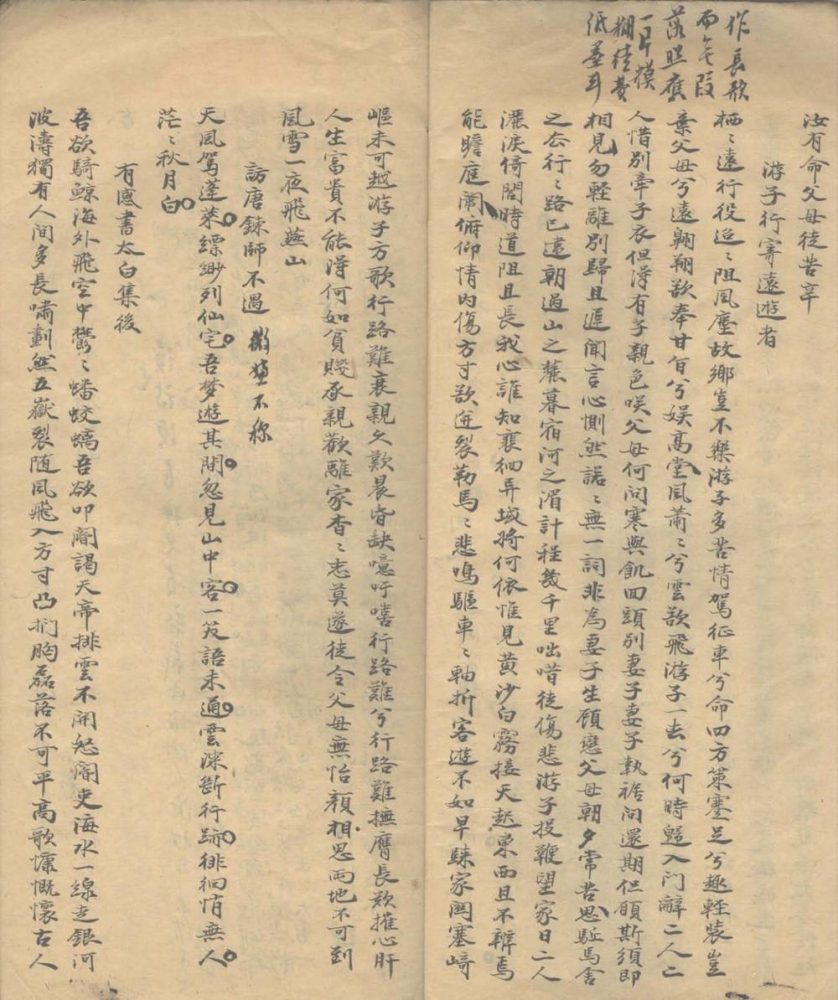 作長歌
而無段
落照應
一片模
糊徒費
低昂耳
汝有命父母徒苦辛
游子行寄遠遊者
栖〻遠行役迢〻阻風塵故鄉豈不樂游子多苦情駕征車兮命四方策蹇足兮趣輕裝豈
棄父母兮遠翱翔欲奉甘旨兮娛高堂風蕭〻兮雲欲飛游子一去兮何時歸入门辭二人二
人惜別牽子衣但得有子親色咲父母何问寒與飢回頭別妻子妻子執裾问還期但願斯須即
相見勿輕離別歸且遲聞言心惻然諾〻無一詞非為妻子生顧戀父母朝夕常苦思駈馬舍
之去行〻路已遠朝過山之麓暮宿河之湄計程幾千里咄嗟徒傷悲游子投鞭望家日二人
灑淚倚閭時道阻且長我心誰知襄徊异域將何依惟見黄沙白霧接天起東西且不辨焉
能瞻庭闈俯仰情内傷方寸欲迸裂勒馬〻悲鳴驅車〻軸折客遊不如早歸家関塞崎
嶇未可越游子方歌行路難衰親久歎晨昏缺噫吁嘻行路難兮行路難撫膺長歎摧心肝
人生富貴不能得何如貧賤承親歡離家杳〻志莫遂徒令父母無怡顏相思兩地不可到
風雪一夜飛燕山
訪唐鍊師不遇 微嫌不称
天風駕蓬萊縹缈列仙宅吾梦遊其間忽見山中客一笑語未通雲深斷行跡徘徊悄無人
茫〻秋月白
有感書太白集後
吾欲騎鯨海外飛空中鬱〻蟠蛟螭吾欲叩閽謁天帝排雲不開怒閽吏海水一線走銀河
波濤獨有人间多長嘯劃然五嶽裂随風飛入方寸凸捫胸磊落不可平高歌慷慨懷古人